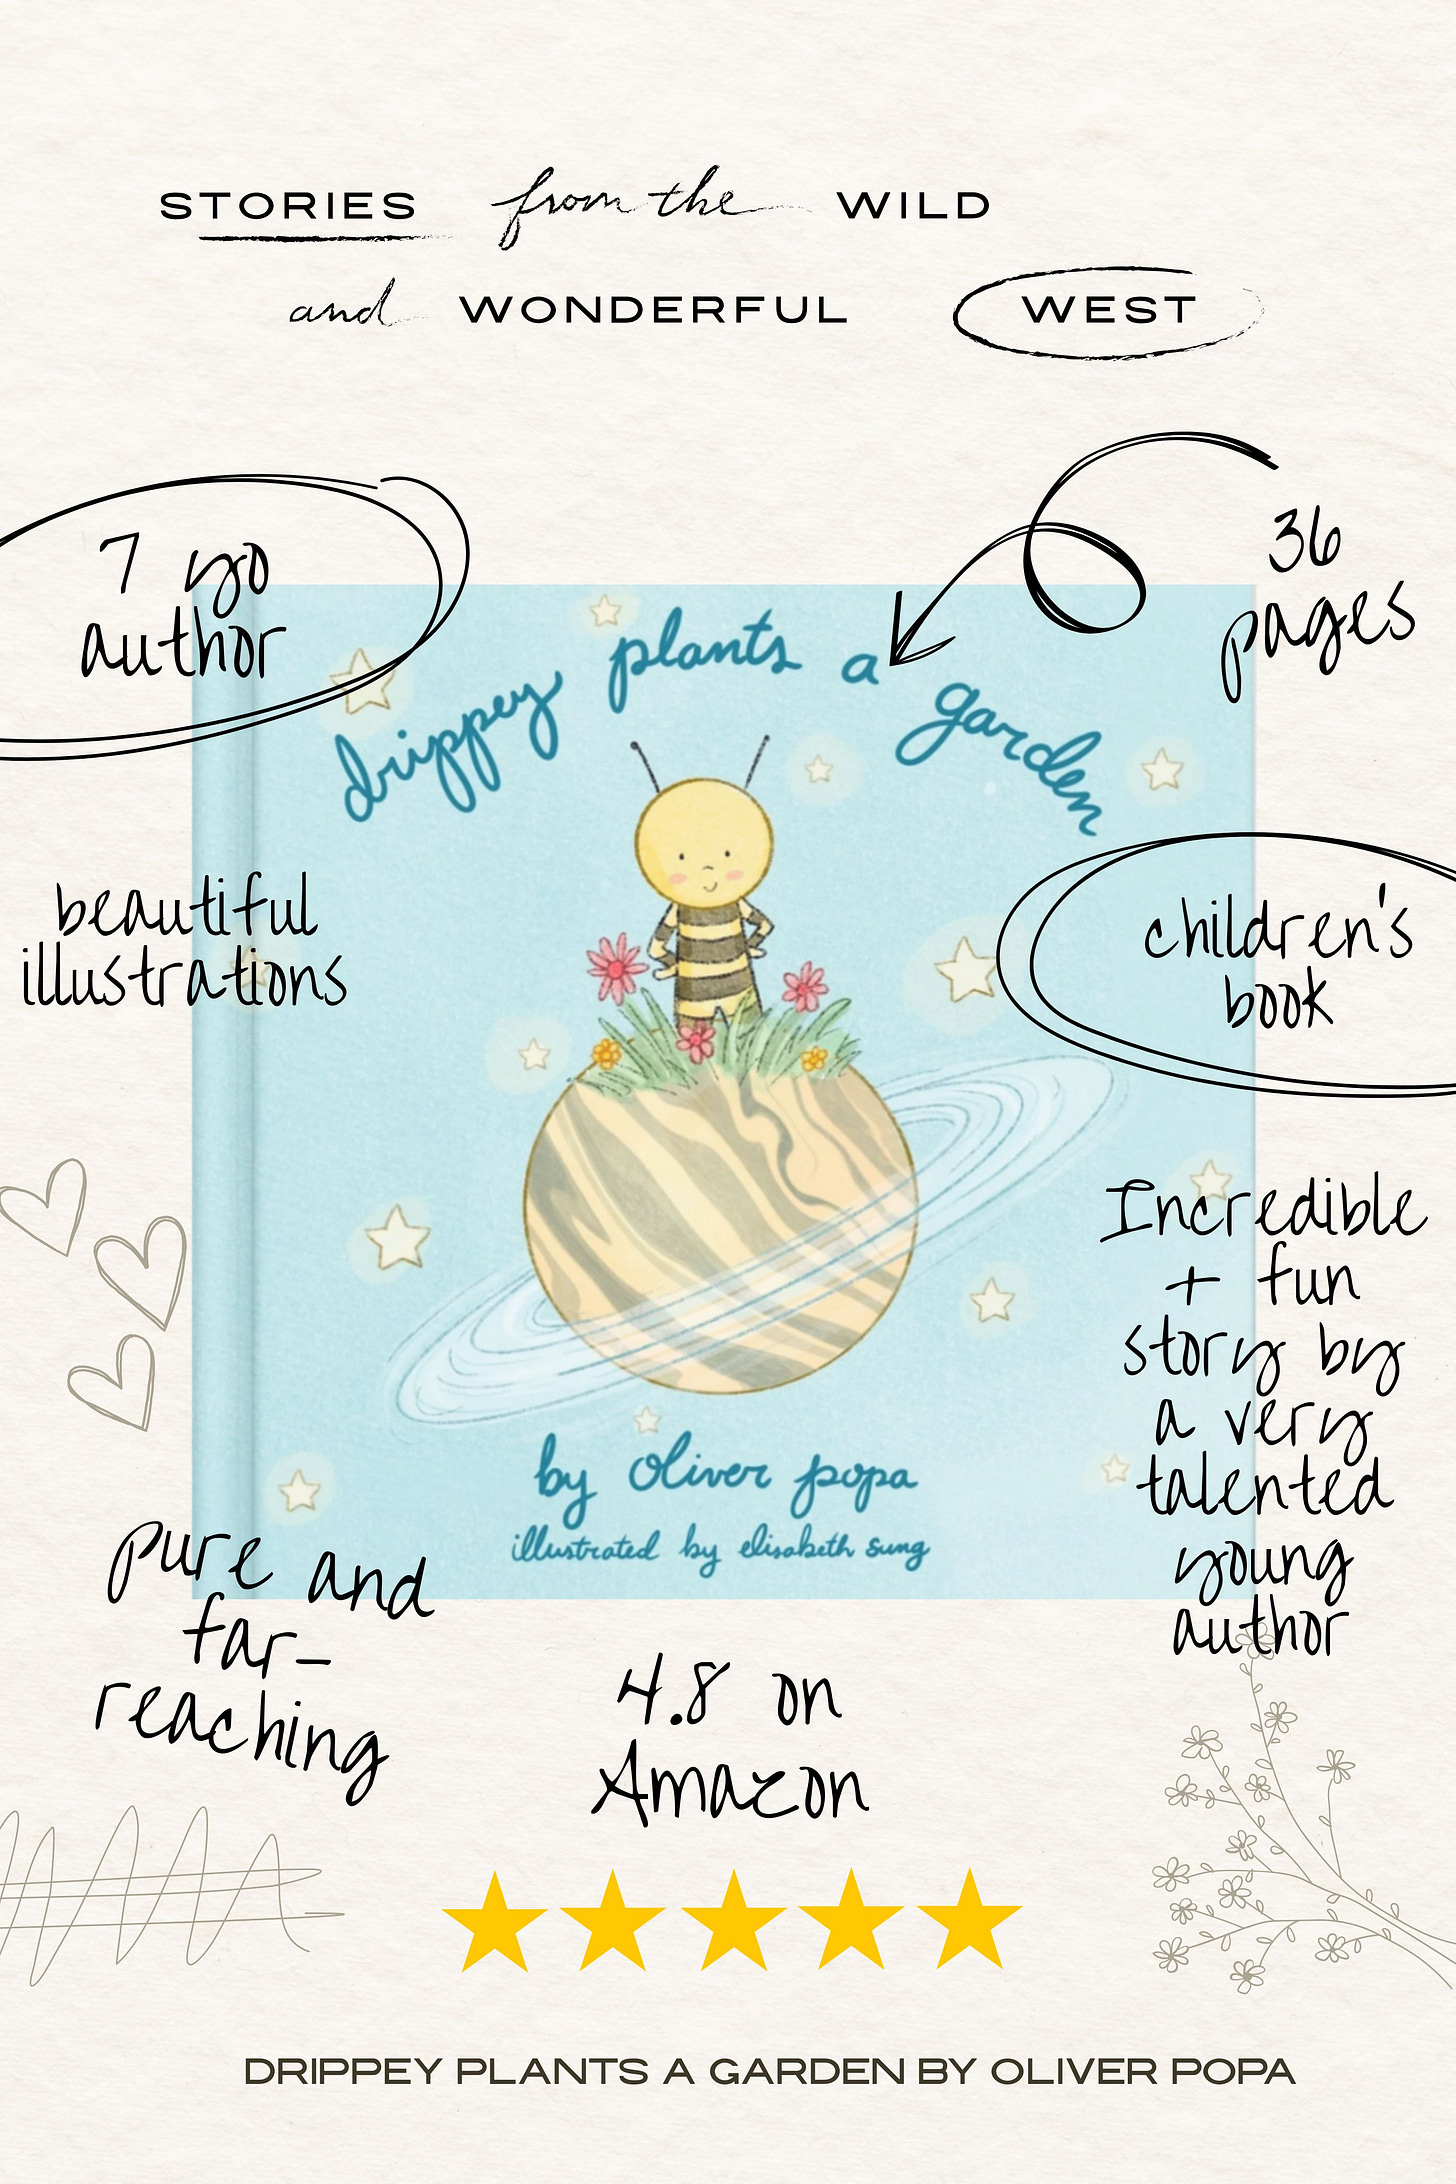 STORIES from the WILD
and WONDERFUL WEST
7 yo
author
36
pages
drippey plants a garden
beautiful
illustrations
children's
book
Incredible
+ fun
story by
a very
talented
young
author
by oliver popa
illustrated by elisabeth sung
pure and
far-
reaching
4.8 on
Amazon
DRIPPEY PLANTS A GARDEN BY OLIVER POPA